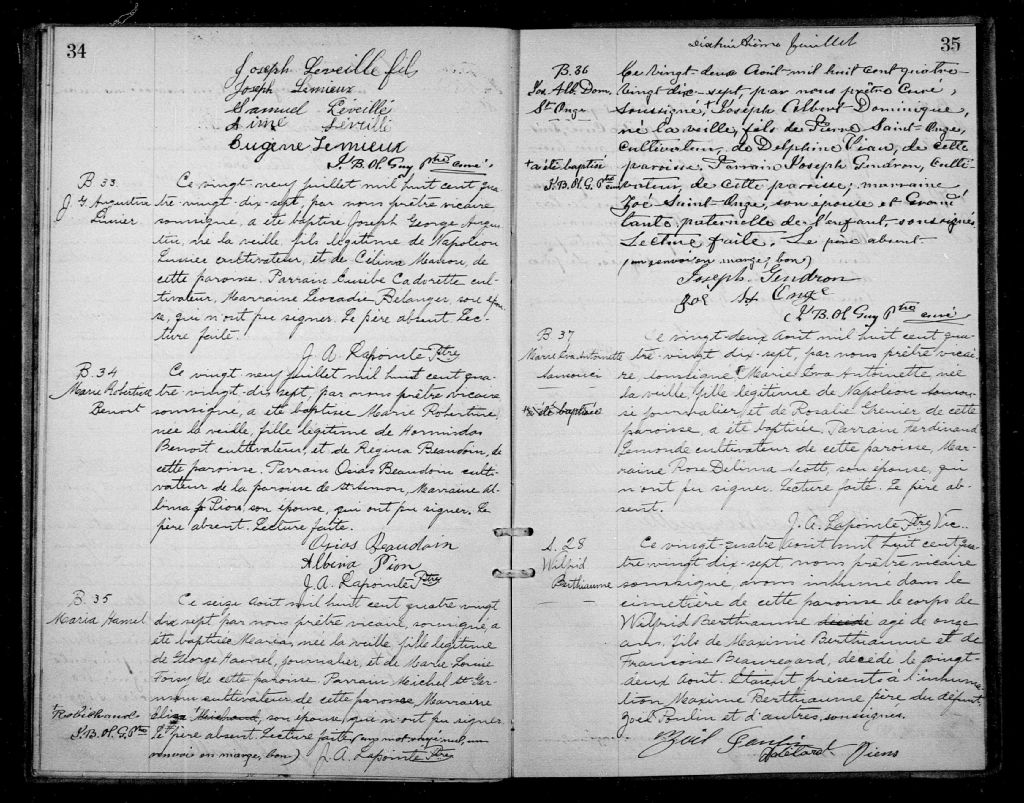 34
Joseph Leveille fils
Joseph Lemieux
Samuel Léveillé
Aimé Léveillé
Eugène Lemieux
J. B. H. Guy Ptre curé
B 33
Ce vingt neuf juillet mil huit cent qua-
tre vingt-dix-sept, par nous prêtre vicaire
soussigné, a été baptisé Joseph George Augus-
tin, né la veille, fils légitime de Napoléon
cultivateur, et de Célina Masson, de
cette paroisse. Parrain Eusèbe Cadorette cul-
tivateur, Marraine Léocadie Bélanger, son épou-
se, qui n'ont pu signer. Le père absent. Lec-
ture faite.
J. A. Lapointe Ptre
B. 34
Marie Robertine
Benoit
Ce vingt neuf juillet mil huit cent qua-
tre vingt dix sept, par nous prêtre vicaire
soussigné, a été baptisée Marie Robertine,
née la veille, fille légitime de Hormisdas
Benoit cultivateur, et de Régina Beaudoin, de
cette paroisse. Parrain Ozias Beaudoin culti-
vateur de la paroisse de St Simon, Marraine Al-
bina Pion, son épouse, qui ont pu signer. Le
père absent. Lecture faite.
Ozias Beaudoin
Albina Pion
J. A. Lapointe Ptre
B. 35
Maria Hamel
Ce seize Août mil huit cent quatre vingt
dix sept par nous prêtre vicaire, soussigné, a
été baptisée Maria, née la veille, fille légitime
de George Hamel, journalier, et de Marie Louise
de cette paroisse. Parrain Michel St Ger-
main cultivateur de cette paroisse, Marraine
Eliza Michaud, son épouse, qui n'ont pu signer
Le père absent. Lecture faite, (un mot rayé nul, un
renvoi en marge, bon) J. A. Lapointe Ptre
+ Robichaud
J. B. H. G. Ptre
35
Dixhuitième juillet
B. 36
Jos. Alb. Dom.
St Onge
Ce vingt-deux Août mil huit cent quatre
vingt dix-sept, par nous prêtre Curé,
soussigné, + Joseph Albert Dominique,
né la veille, fils de Pierre Saint-Onge,
cultivateur, de Delphine Viau, de cette
paroisse. Parrain Joseph Gendron, culti-
vateur, de cette paroisse; marraine
Zoé Saint-Onge, son épouse et Grand'
tante paternelle de l'enfant, soussignés.
Lecture faite. Le père absent
(un renvoi en marge, bon)
+ a été baptisé
J. B. H. G. Ptre curé
Joseph Gendron
Zoé St Onge
J. B. H. Guy Ptre curé
B 37
Marie Eva Antoinette
Ce vingt-deux Août mil huit cent qua-
tre vingt dix-sept, par nous prêtre vicai-
re, soussigné, Marie Eva Antoinette née
la veille, fille légitime de Napoléon
journalier, et de Rosalie Grenier de cette
paroisse, a été baptisée. Parrain Ferdinand
Lemonde cultivateur de cette paroisse, Mar-
raine Rose Délima Scott, son épouse, qui
n'ont pu signer. Lecture faite. Le père ab-
sent.
a été baptisée
J. A. Lapointe Ptre Vic.
S. 28
Wilfrid
Berthiaume
Ce vingt-quatre Août mil huit cent qua-
tre vingt dix-sept, nous prêtre vicaire
soussigné, avons inhumé dans le
cimetière de cette paroisse le corps de
Wilfrid Berthiaume agé de onze
ans, fils de Maxime Berthiaume et de
Françoise Beauregard, décédé le vingt-
deux Août. Étaient présents à l'inhuma-
tion Maxime Berthiaume père du défunt,
Zoël Poulin et d'autres, soussignés.
Zoël
Piens